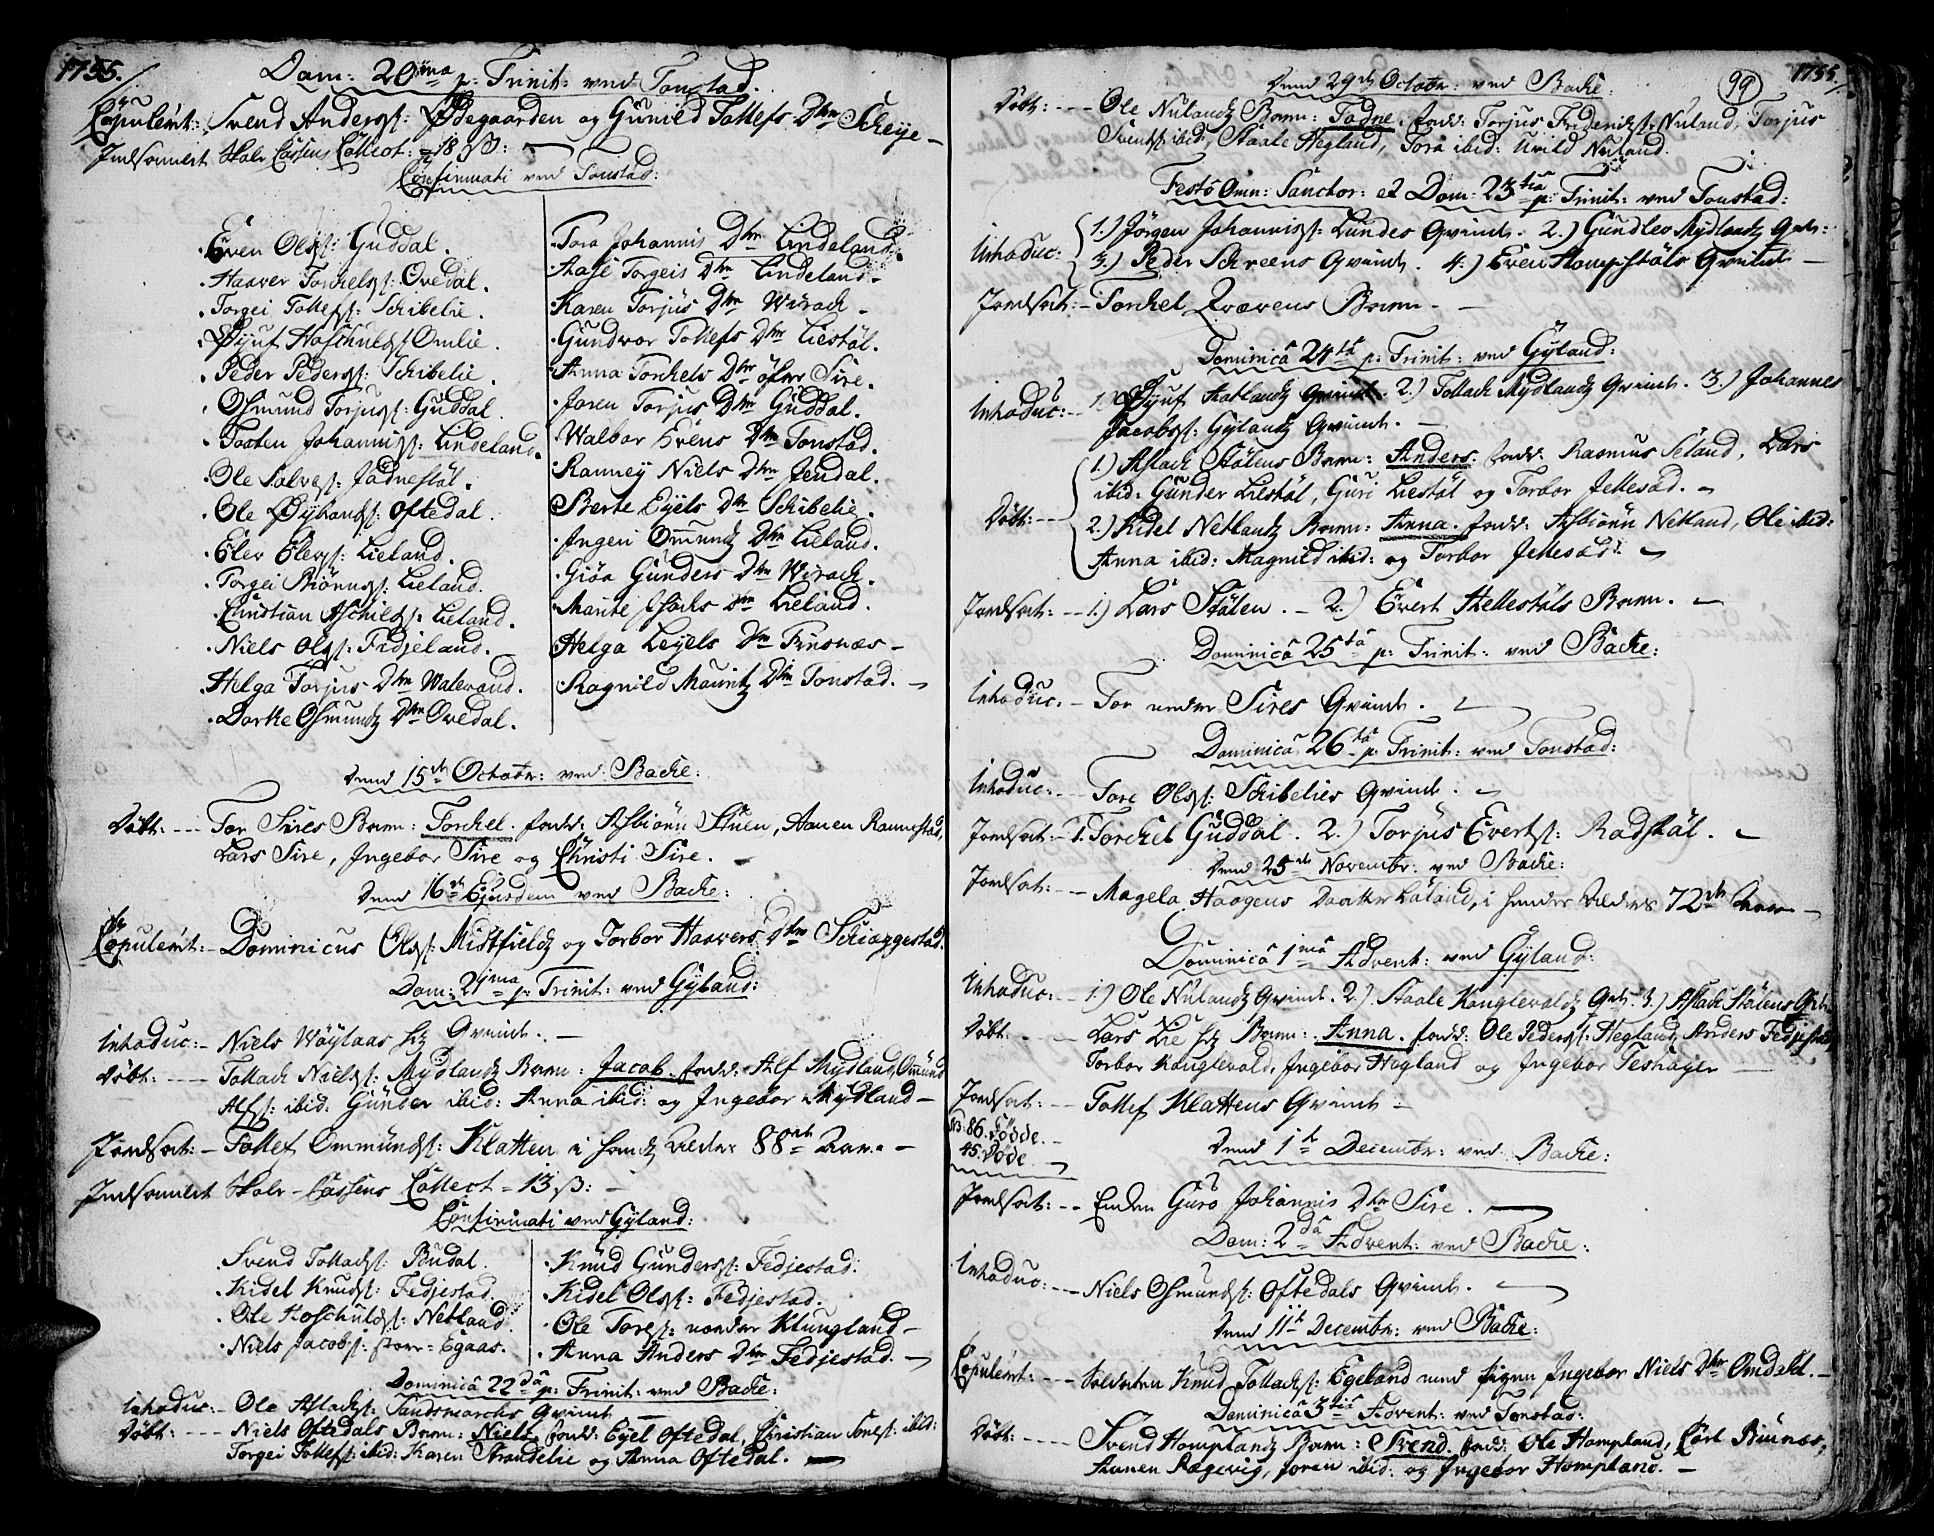 1755.
Dom: 20ma p: Trinit: ved Tonstad.
Copulerit: Svend Anders: Ødegaarden og Gunild Tollefs Dtr Scheye –
Indsamlet Skole Cassens Collect: = 18 sz:
Confirmati ved Tonstad:
Even Ols: Guddal.
Haaver Torkels: Ovedal.
Torgei Tollefs: Schibelie.
Øyuf Hoschulds Omlie.
Peder Peders: Schibelie.
Osmund Torjus: Guddal.
Taaten Johannis: Lindeland.
Ole Salves: Jødnestøl.
Ole Øyvands: Oftedal.
Elev Elevs: Lieland.
Torgei Biørns: Lieland.
Christian Aschilds: Lieland.
Niels Ols: Fidjeland.
Helga Torjus Dtr Watervand.
Dorthe Osmunds Dtr Ovedal.
Tora Johannis Dtr Lindeland.
Aase Torgeis Dtr Lindeland.
Karen Torjus Dtr Wirach
Gundvor Tollefs Dtr Liestøl.
Anna Torkels Dtr øfver Sire.
Joren Torjus Dtr Guddal.
Walbor Evens Dtr Tonstad.
Ranney Niels Dtr Jendal.
Berte Eyels Dtr Schibelie.
Ingeri Omunds Dtr Lieland.
Giøa Gunders Dtr Wirach.
Marite Isachs Dtr Lieland.
Helga Leyels Dtr Frisnæs –
Ragnild Mauritz Dtr Tonstad. –
Dend 15de Octobr: ved Backe:
Døbt: --- Tor Sires Barn: Torkel. fadd: Asbiørn Stuen, Aanen Rannestad,
Lars Sire, Ingebor Sire og Christi Sire.
Dend 16de Ejusdem ved Backe:
Copulerit: – Dominicus Ols: Midtfieldz og Torbor Haavers Dtr Schiæggestad.
Dom: 21ma p: Trinit: ved Gyland:
Introduc: – Niels Wøylaas Hz Qvinde. –
Døbt: ---- Tollach Niels: Mydlandz Barn: Jacob. fadd: Alf Mydland, Omund
Alfs: ibid: Gunder ibid: Anna ibid: og Ingebor Mydland –
Jordfæst: – Tollef Ommunds: Klatten i hands Alders 88de Aar. –
Indsamlet Skole-Cassens Collect = 13 sz: –
Confirmati ved Gyland:
Svend Tollachs: Budal.
Kidel Knuds: Fedjestad.
Ole Hoschulds: Netland.
Niels Jacobs: store-Egaas.
Knud Gunders: Fedjestad.
Kidel Ols: Fedjestad.
Ole Tores: nordre Klungland –
Anna Anders Dtr Fedjestad. –
Dominica 22da p: Trinit: ved Backe:
Introduc: – Ole Aslachs: Sandsmarchs Qvinde
Døbt: --- Niels Oftedals Barn: Niels. fadd: Eyel Oftedal, Christian Tores: ibid:
Torgei Tollefs: ibid: Karen Strandelie og Anna Oftedal. –
99
1755.
Dend 29de Octobr: ved Backe:
Døbt: --- Ole Nulandz Barn: Tadne. fadd: Torjus Frideriks: Nuland, Torjus
Svends: ibid, Staale Hegland, Tora ibid: Uvild Nuland.
Festo Omn: Sanctor: et Dom: 23tia p: Trinit: ved Tonstad:
Introduc: 1.) Jørgen Johannis: Lundes Qvinde. 2.) Gundlev Mydlandz Qvde:
3.) Peder Schreens Qvinde. 4.) Even Hompstøls Qvinde –
Jordfæst: – Torkel Qværens Barn –
Dominica 24ta p: Trinit: ved Gyland:
Introduc: – 1.) Øyuf Aatlandz Qvinde. 2.) Tollach Mydlandz Qvinde. 3.) Johannes
Jacobs: Gylandz Qvinde. –
Døbt: -- 1.) Aslach Stølens Barn: Anders. fadd: Rasmus Seland, Lars
ibid: Gunder Liestøl, Guri Liestøl og Torbor Jellesad. –
2.) Kidel Netlandz Barn: Anna. fadd: Asbiørn Netland, Ole ibid:
Anna ibid: Magnild ibid: og Torbor Jellesad: –
Jordfæst: -- 1.) Lars Stølen. – 2.) Evert Hellestøls Barn. –
Dominica 25ta p: Trinit: ved Backe:
Introduc: – Tor nedre Sires Qvinde.
Dominica 26ta p: Trinit: ved Tonstad:
Introduc: -- Tore Ols: Schibelies Qvinde. –
Jordfæst: – 1. Torchel Guddal. 2.) Torjus Everts: Rødstøl. –
Dend 25de Novembr: ved Backe:
Jordfæst: -- Magela Haagens Daatter Løland, i hendes Alders 72de Aar –
Dominica 1ma Advent: ved Gyland:
Introduc: – 1.) Ole Nulandz Qvinde. 2.) Staale Konglevoldz Qvde. 3.) Aslach Stølens Qvde
Døbt: --- Lars Lie Hz Barn: Anna. fadd: Ole Peders: Heglandz, Anders Fedjestad,
Torbor Konglevold, Ingebor Høgland og Ingebor Teshager –
Jordfæst: -- Tollef Klattens Qvinde –
NB: 86. Fødde. –
45. Døde
Dend 1de Decembr: ved Backe:
Jordfæst: -- Enken Guro Johannis Dtr Sire. –
Dom: 2da Advent: ved Backe:
Introduc: -- Niels Osmunds: Oftedals Qvinde. –
Dend 11te Decembr: ved Backe:
Copulerit: --- Soldaten Knud Tollachs: Egeland med pigen Ingebor Niels Dtr Omdahl. –
Dominica 3tia Advent: ved Tonstad:
Døbt: ---- Svend Homplandz Barn: Svend. fadd: Ole Hompland, Carl Biunes,
Aanen Rægevig, Joren ibid: og Ingebor Hompland. –